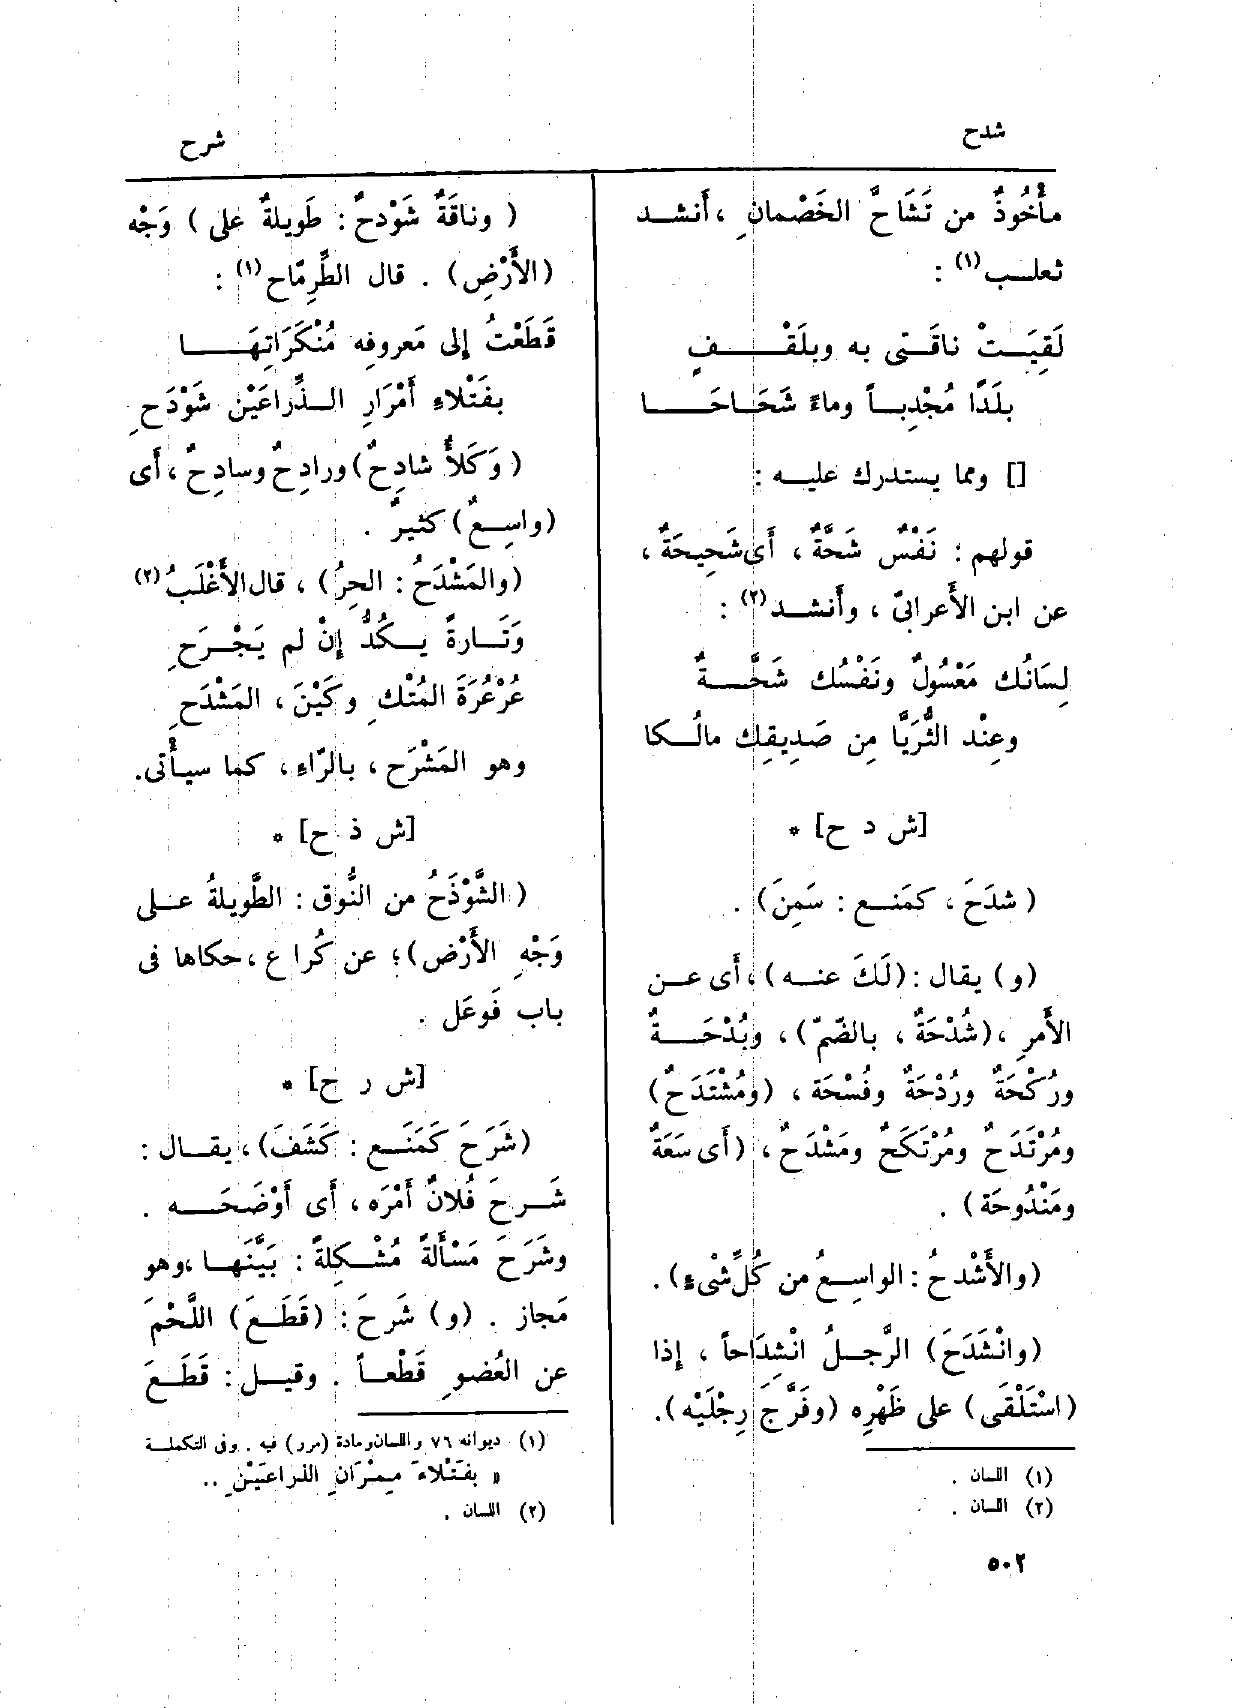 شدح
شرح
مأْخُوذٌ من تَشَاحَّ الخَصْمانِ ، أَنشــد
ثعلــب(١) :
لَقِيَــتْ ناقَــتى به وبلَقْــــفٍ
بلَدًا مُجْدِبــاً وماءً شَحَــاحَــــا
[] ومما يستدرك عليــه :
قولهم : نَفْسٌ شَحَّةٌ ، أَى شَحِيحَةٌ ،
عن ابن الأَعرابىّ ، وأَنشــد(٢) :
لِسَانُك مَعْسُولٌ ونَفْسُك شَحَّـــةٌ
وعِنْد الثُّرَيَّا مِن صَدِيقِك مالُــكا
[ش د ح] *
( شدَحَ ، كمَنَــع : سَمِنَ) .
(و) يقال : (لَكَ عنــه) ، أَى عــن
الأَمرِ ، (شُدْحَةٌ ، بالضّمّ) ، وبُدْحَـــةٌ
ورُكْحَةٌ ورُدْحَةٌ وفُسْحَة ، (ومُشْتَدَحٌ)
ومُرْتَدَحٌ ومُرْتَكَحٌ ومَشْدَحٌ ، (أَى سَعَةٌ
ومَنْدُوحَة) .
(والأَشْدحُ : الواسِــعُ من كُلِّ شْىءٍ) .
(وانْشَدَحَ) الرَّجــلُ انْشِدَاحاً ، إذا
(اسْتَلْقَى) على ظَهْرِه (وفَرَّجَ رِجْلَيْه).
(١) اللسان .
(٢) اللسان .
( وناقَةٌ شَوْدحٌ : طَوِيلةٌ على ) وَجْه
(الأَرْضِ) . قال الطِّرِمّاح(١) :
قَطَعْتُ إلى مَعروفِه مُنْكَرَاتِهَـــــا
بفَتْلاءِ أَمْرَارِ الــذِّراعَيْن شَوْدَحِ
( وَكَلأٌ شادِحٌ) ورادِحٌ وسادِحٌ ، أَى
(واسِــعٌ) كثيرٌ .
(والمَشْدَحُ : الحِرُ) ، قال الأَغْلَبُ(٢)
وَتَــارةً يــكُدُّ إنْ لم يَجْــرَحِ
عُرْعُرَةَ المُتْكِ وكَيْنَ ، المَشْدَحِ
وهو المَشْرَح ، بالرّاءِ ، كما سيأْتى.
[ش ذ ح] *
( الشَّوْذَحُ من النُّوق : الطَّوِيلةُ عــلى
وَجْهِ الأَرْض) ؛ عن كُراع ، حكاها فى
باب فَوعَل .
[ش ر ح] *
(شَرَحَ كَمَنَــع : كَشَفَ) ، يقــال :
شَــرحَ فُلانٌ أَمْرَه ، أَى أَوْضَحَـــه .
وشَرَحَ مَسْأَلةً مُشْــكِلةً : بَيَّنَهــا ،وهو
مَجاز . (و) شَرحَ : (قَطَــعَ) اللَّحْمَ
عن العُضوِ قَطْعــاً . وقيــل : قَطَــعَ
(١) ديوانه ٧٦ واللسان ومادة (مرر) فيه . وفى التكملــة
« بفَتْلاءَ مِمْرَانِ الذراعَيْنِ ..
(٢) اللسان .
٥٠٢